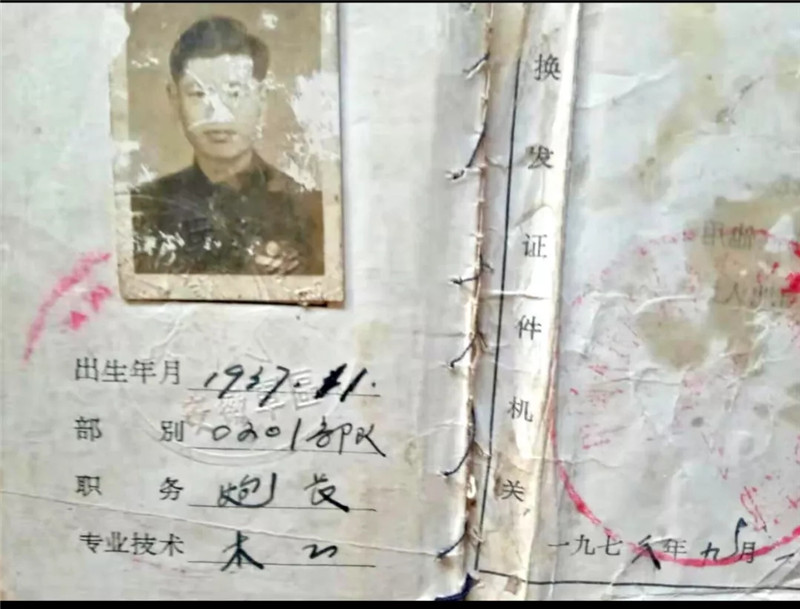 出生年月 1937.11.
部别 0201部队
职务 炮长
专业技术 木工
换发证件机关
一九七八年九月